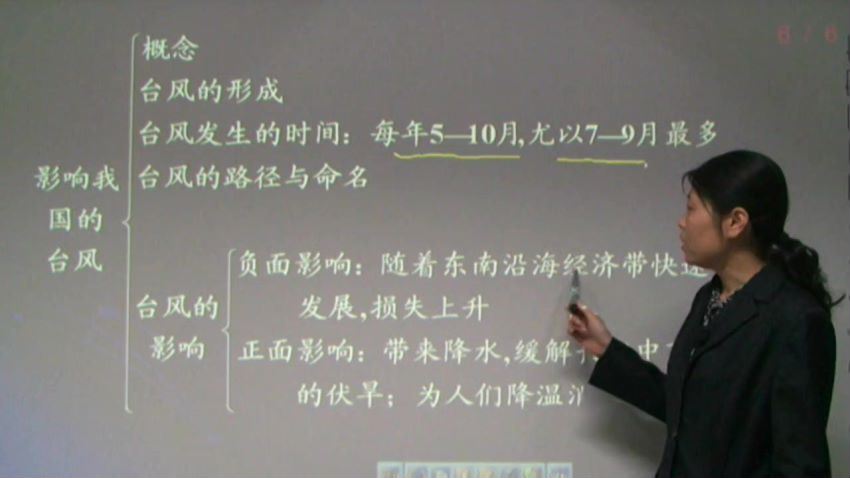 6 / 6
概念
台风的形成
台风发生的时间：每年5—10月,尤以7—9月最多
影响我国的台风
台风的路径与命名
台风的影响
负面影响：随着东南沿海经济带快速
发展,损失上升
正面影响：带来降水,缓解
中
的伏旱；为人们降温消